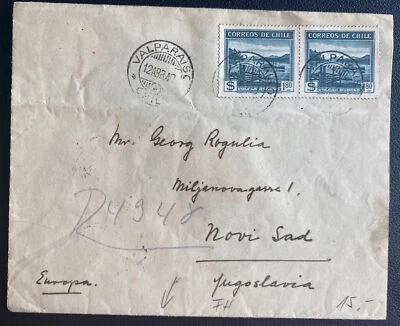 CORREOS DE CHILE
CORREOS DE CHILE
$ 1.80
$ 1.80
VALPARAISO
12 ABR
CHILE
VALPARAISO
Mr. Georg Rogulia
Miljanovagasse 1,
R4948
Novi Sad
Europa.
Yugoslavia
FH
15.-